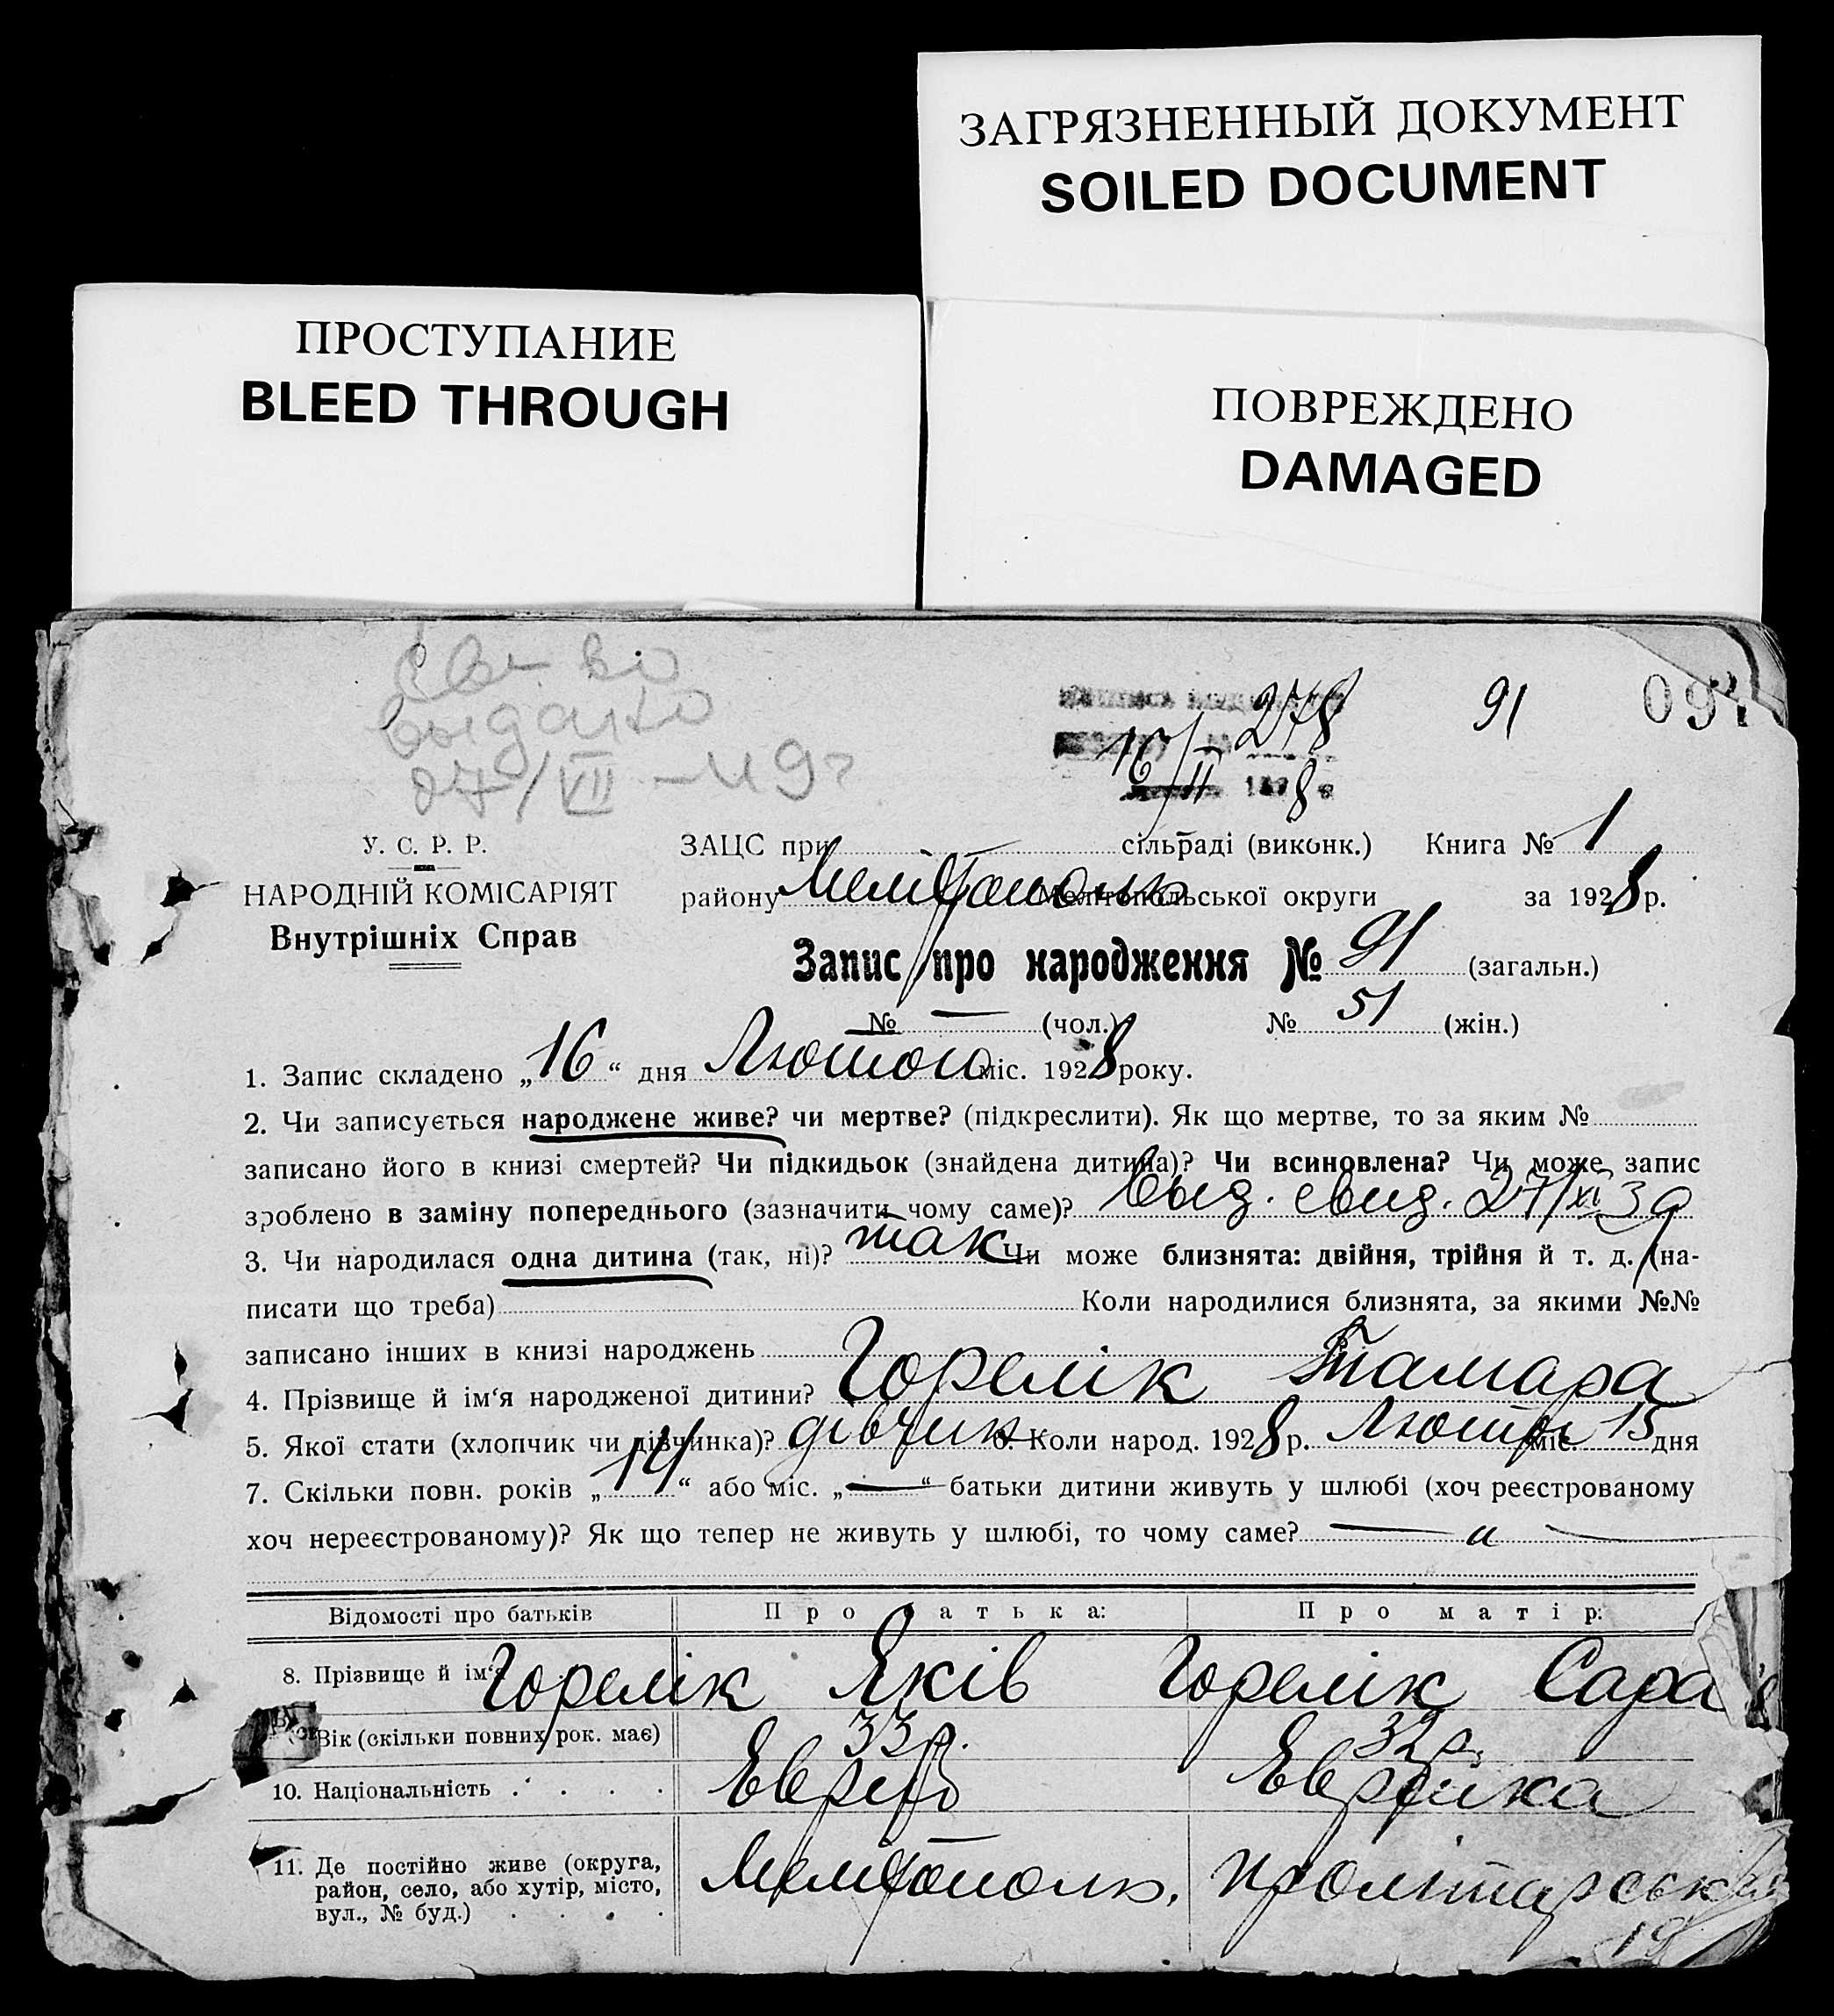 ЗАГРЯЗНЕННЫЙ ДОКУМЕНТ
SOILED DOCUMENT
ПРОСТУПАНИЕ
BLEED THROUGH
ПОВРЕЖДЕНО
DAMAGED
Св-во
выдано
27/VII-49г
278
91
16/II 1928
У. С. Р. Р.
НАРОДНІЙ КОМІСАРІЯТ
Внутрішніх Справ
ЗАЦС при сільраді (виконк.) Книга № 1
району Мелітополь Мелітопольської округи за 1928 р.
Запис про народження № 91 (загальн.)
№ — (чол.) № 51 (жін.)
1. Запис складено „16“ дня Лютого міс. 1928 року.
2. Чи записується народжене живе? чи мертве? (підкреслити). Як що мертве, то за яким №
записано його в книзі смертей? Чи підкидьок (знайдена дитина)? Чи всиновлена? Чи може запис
зроблено в заміну попереднього (зазначити чому саме)? Выд. свид. 27/XI 39
3. Чи народилася одна дитина (так, ні)? так Чи може близнята: двійня, трійня й т. д. (на-
писати що треба) Коли народилися близнята, за якими №№
записано інших в книзі народжень
4. Прізвище й ім‘я народженої дитини? Горелік Тамара
5. Якої стати (хлопчик чи дівчинка)? дівчик 6. Коли народ. 1928 р. Люты міс. 15 дня
7. Скільки повн. років „14“ або міс. „—“ батьки дитини живуть у шлюбі (хоч реєстрованому
хоч нереєстрованому)? Як що тепер не живуть у шлюбі, то чому саме? — „ —
Відомості про батьків Про батька: Про матір:
8. Прізвище й ім‘я Горелік Яків Горелік Сара
Вік (скільки повних рок. має) 33 р. 32 р.
10. Національність . . . . Еврей Еврейка
11. Де постійно живе (округа,
район, село, або хутір, місто,
вул., № буд.) . . . . Мелітополь, Пролітарськ
19